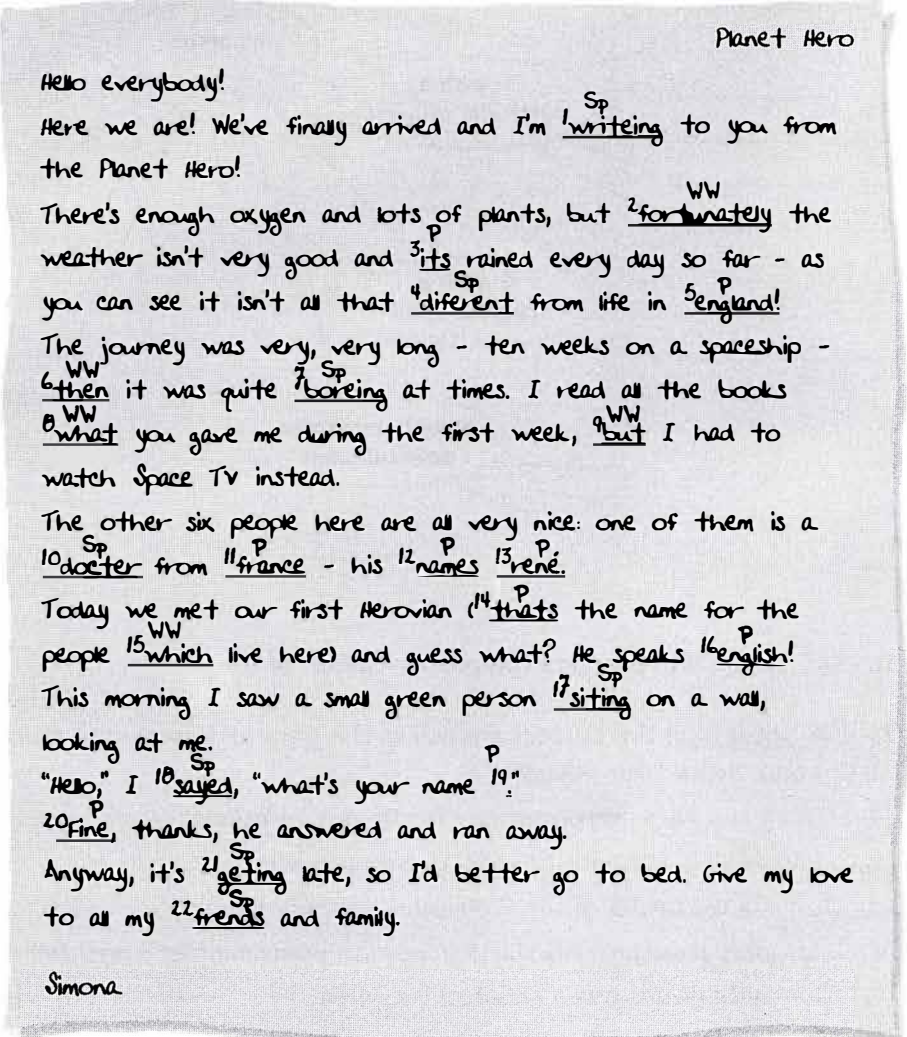 Planet Hero
Hello everybody!
Sp
Here we are! We've finally arrived and I'm 1writeing to you from
the Planet Hero!
WW
There's enough oxygen and lots of plants, but 2fortunately the
P
weather isn't very good and 3its rained every day so far - as
Sp P
you can see it isn't all that 4diferent from life in 5england!
The journey was very, very long - ten weeks on a spaceship -
WW Sp
6then it was quite 7boreing at times. I read all the books
WW WW
8what you gave me during the first week, 9but I had to
watch Space TV instead.
The other six people here are all very nice: one of them is a
Sp P P P
10docter from 11france - his 12names 13rené.
P
Today we met our first Herovian (14thats the name for the
WW P
people 15which live here) and guess what? He speaks 16english!
Sp
This morning I saw a small green person 17siting on a wall,
looking at me.
Sp P
"Hello," I 18sayed, "what's your name 19."
P
20Fine, thanks, he answered and ran away.
Sp
Anyway, it's 21geting late, so I'd better go to bed. Give my love
Sp
to all my 22frends and family.
Simona